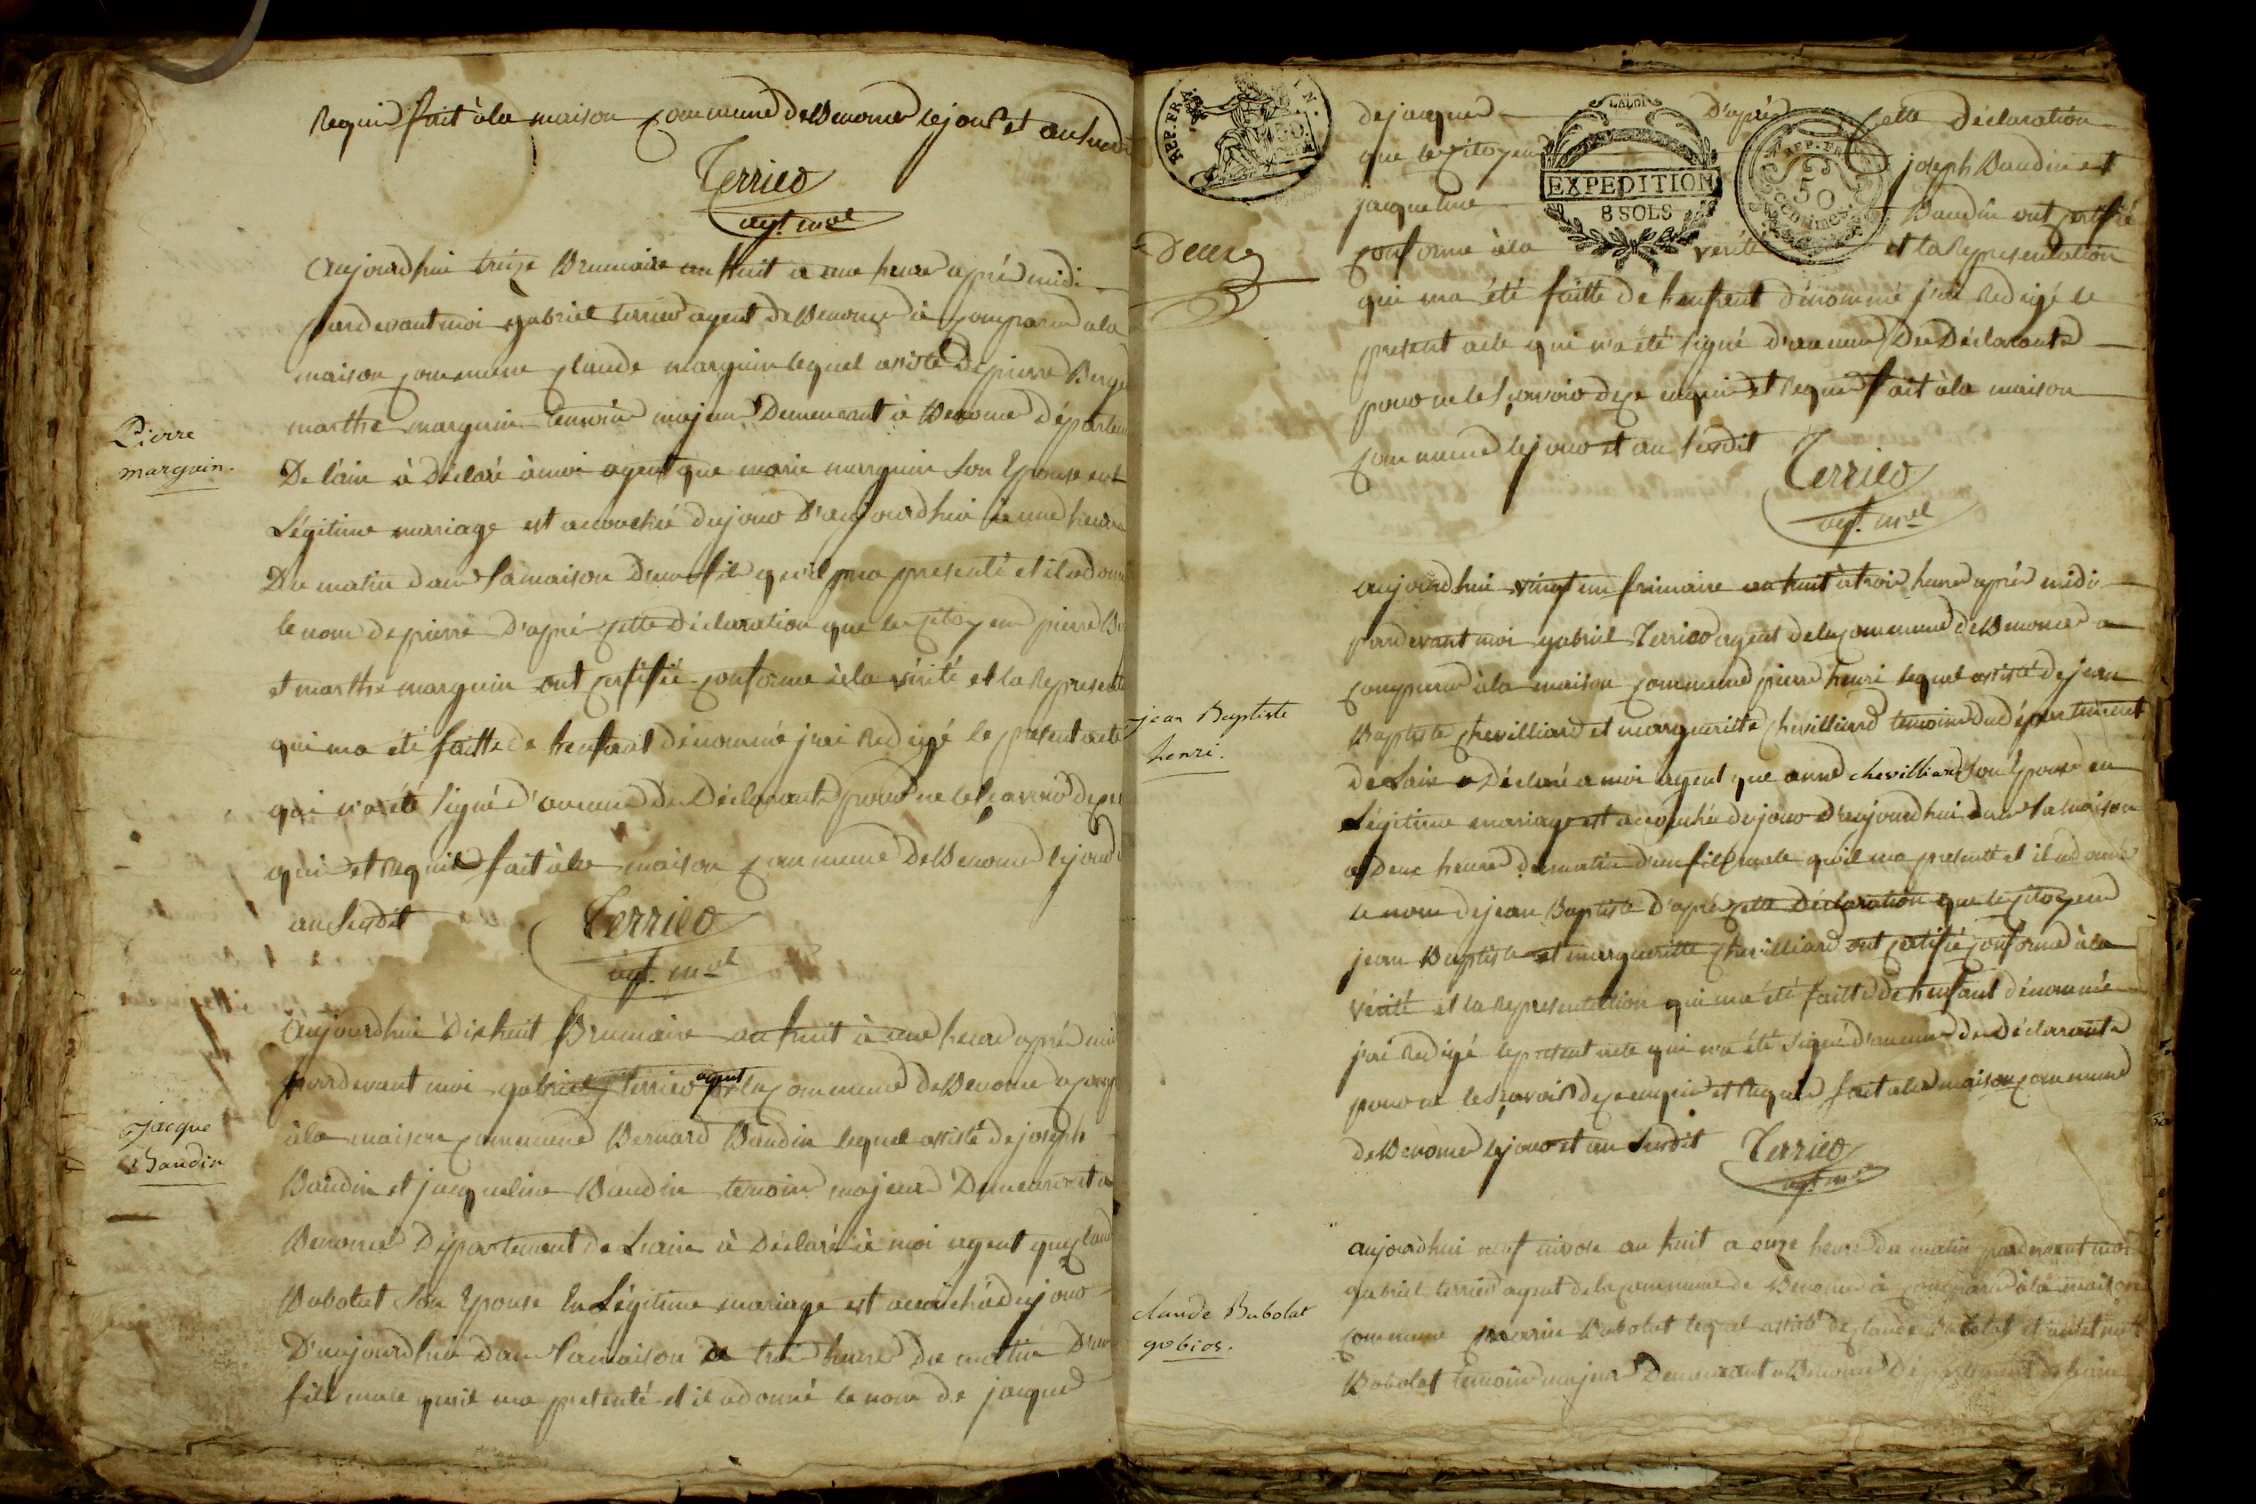 Requis fait à la maison commune de Benonce le jour et an susd
Terrier
agt. mel
Aujourdhui treize Brumaire an huit a une heure après midi
pardevant moi gabriel terrier agent de Benonce à comparu a la
maison commune claude marguin lequel assisté de pierre Berge
marthe marguin temoin majeur Demeurant à Benonce Départem
De l'ain à Déclaré à moi agent que marie marguin son Epouse en
Légitime mariage est acouchée du jour D'aujourdhui a une heure
Du matin dans sa maison D'un fils qu'il ma presenté et il a donn
le nom de pierre D'aprè cette Déclaration que le citoyen pierre B
et marthe marguin ont certifié conforme à la vérité et la Represent
qui ma été faitte de lenfant dénommé j'ai Redigé le present acte
qui n'a été signé d'aucuns des Déclarants pour ne le scavoir de ce en
quis et Requis fait à la maison commune De Benonce le jour
an susdit
Terrier
agt. mel
Pierre
marguin.
Aujourdhui Dixhuit Brumaire an huit à une heure après mid
pardevant moi gabriel terrier agent de la commune de Benonce a comp
à la maison commune Bernard Baudin lequel assisté de joseph
Baudin et jacqueline Baudin temoin majeur Demeurant a
Benonce Département de Lain à Déclaré à moi agent que claud
Babolat son Epouse En Légitime mariage est acouchée du jour
D'aujourdhui dans sa maison a troi heure du matin D'un
fils male qu'il ma presenté et il a donné le nom de jacque
jacque
Baudin
de jacque D'après cette Déclaration
que le citoyen joseph Baudin et
jacqueline Baudin ont certifié
conforme à la vérité et la Representation
qui ma été faitte de lenfant dénommé j'ai Redigé le
present acte qui n'a été signé d'aucuns Des Déclarants
pour ne le scavoir de ce enquis et Requis fait à la maison
commune le jour et an susdit
Terrier
agt. mel
REP. FRA.
LA LOI
EXPEDITION
8 SOLS
REP. FRA.
50
centimes.
Deces
aujourdhui vingt un frimaire an huit à trois heure après midi
pardevant moi gabriel Terrier agent de la commune de Benonce a
comparu à la maison commune pierre henri lequel assisté de jean
Baptiste chevilliard et margueritte chevilliard temoins du département
de Lain a Déclaré a moi agent que anne chevilliard son Epouse en
Légitime mariage est acouchée du jour d'aujourdhui dans sa maison
a Deux heure du matin d'un fils male qu'il ma presenté et il a donné
le nom de jean Baptiste D'après cette Déclaration que le citoyen
jean Baptiste et margueritte chevilliard ont certifié conforme à la
vérité et la Representation qui ma été faitte de lenfant dénommé
j'ai Redigé le present acte qui n'a été signé d'aucuns des déclarants
pour ne le scavoir de ce enquis et Requis fait a la maison commune
de Benonce le jour et an susdit Terrier
agt. mel
jean Baptiste
henri.
aujourdhui neuf nivose an huit a onze heure du matin pardevant moi
gabriel terrier agent de la commune de Benonce à comparu à la maison
commune perrin Babolat lequel assisté de claude Babolat et
Babolat temoin majeur Demeurant a Benonce Département de lain
claude Babolat
gobios.